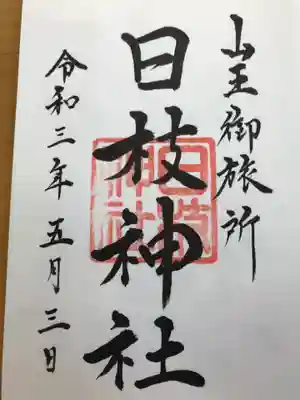 山王御旅所
日枝神社
令和三年五月三日
日枝
神社